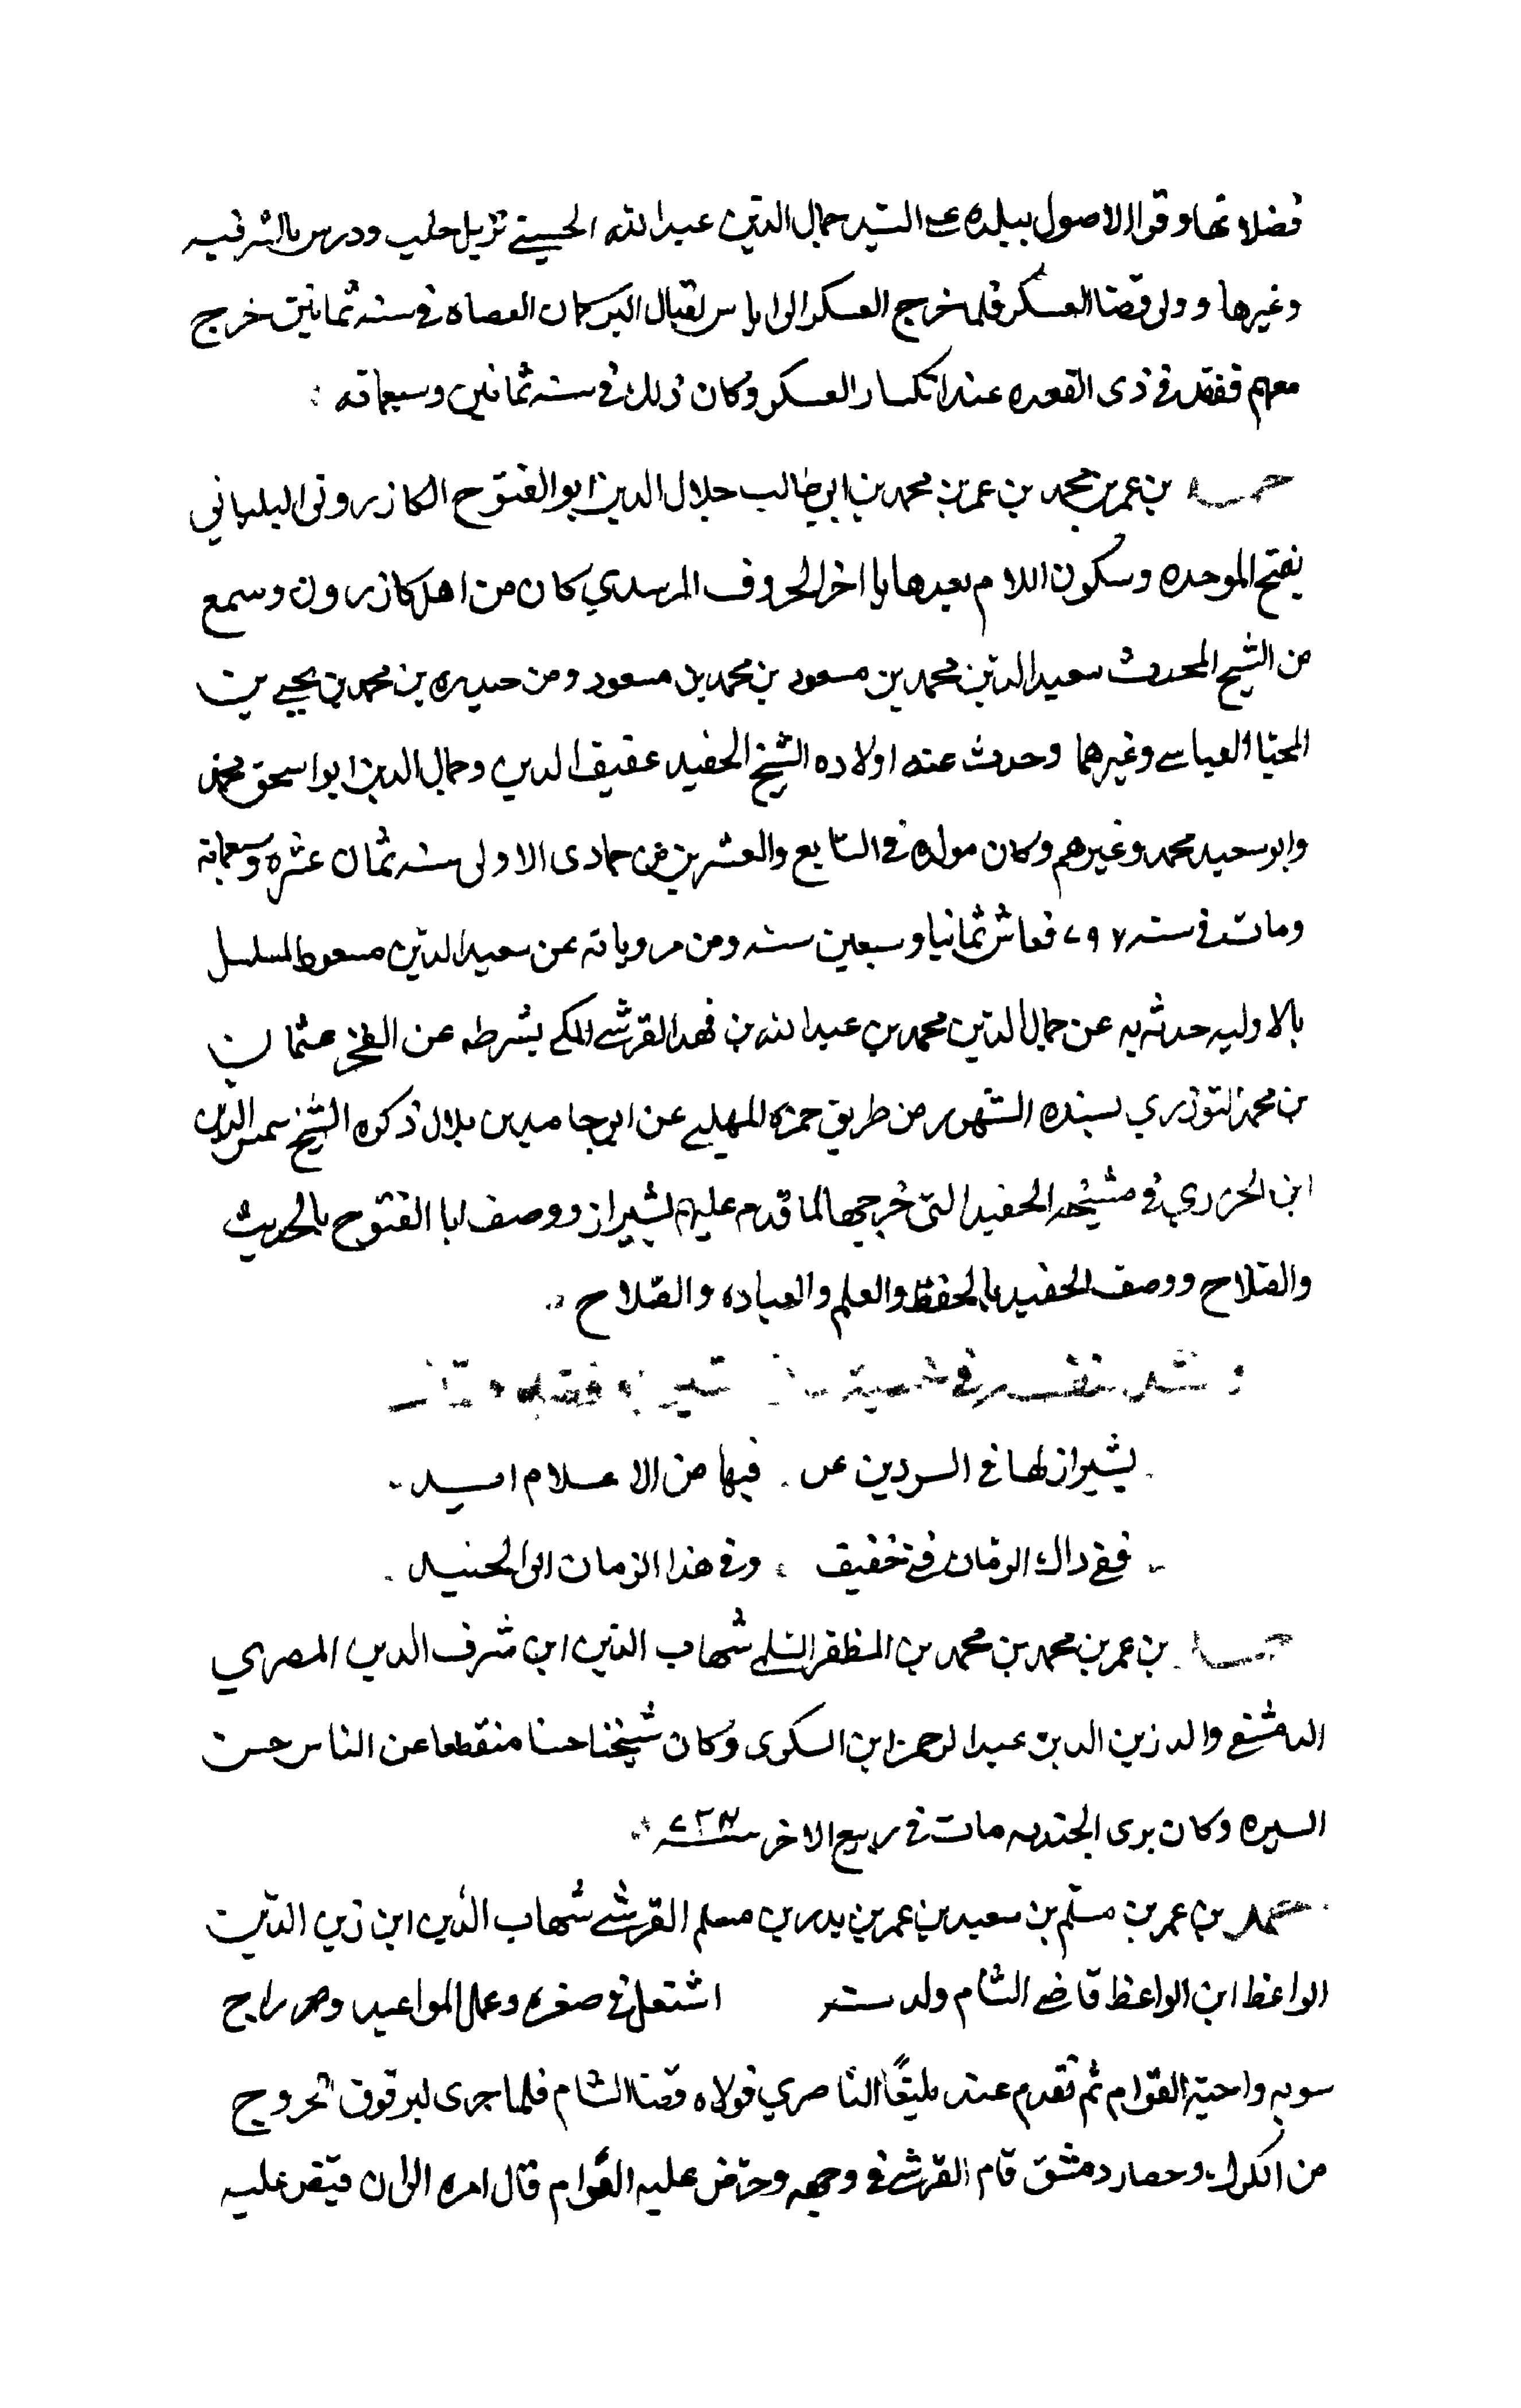 فضلائها وقرا الاصول ببلده على السيد جمال الدين عبد الله الحسيني نزيل حلب ودرس بالشرفيه
وغيرها وولى قضا العسكر فلما خرج العسكر الى اياس لقتال التركمان العصاه في سنه ثمانين خرج
معهم ففقد في ذى القعده عند انكسار العسكر وكان ذلك في سنه ثمانين وسبعمائه
احمد بن عمر بن محمد بن عمر بن محمد بن ابي طالب جلال الدين ابو الفتوح الكازرونى البليانى
بفتح الموحده وسكون اللام بعدها يا اخر الحروف المرشدي كان من اهل كازرون وسمع
من الشيخ المحدث سعيد الدين محمد بن مسعود بن محمد بن مسعود ومن حيدره بن محمد بن يحيى بن
المحيا العباسي وغيرهما وحدث عنه اولاده الشيخ الحفيد عفيف الدين وجمال الدين ابو اسحق محمد
وابو سعيد محمد وغيرهم وكان مولده في السابع والعشرين من جمادى الاولى سنه ثمان عشره وسبعمايه
ومات في سنه ٧٩٧ فعاش ثمانيا وسبعين سنه ومن مروياته عن سعيد الدين مسعود المسلسل
بالاوليه حدثه به عن جمال الدين محمد بن عبد الله بن فهد القرشي المكي بشرطه عن الفخر عثمان
بن محمد التوزري بسنده الشهور من طريق حمزه المهلبي عن ابي حامد بن بلال ذكره الشيخ شمس الدين
ابن الجزري في مشيخه الحفيد التي خرجها لما قدم عليهم بشيراز ووصف ابا الفتوح بالحديث
والصلاح ووصف الحفيد بالحفظ والعلم والعباده والصلاح
بشيراز لها في فيها من الاعلام
ففي ذاك الزمان خفيف وفي هذا الزمان ابو الجنيد
احمد بن عمر بن محمد بن محمد بن المظفر السلمي شهاب الدين ابن شرف الدين المصري
الدمشقي والد زين الدين عبد الرحمن ابن السكرى وكان شيخنا حسنا منقطعا عن الناس حسن
السيره وكان بزى الجنديه مات في ربيع الاخر سنه
احمد بن عمر بن مسلم بن سعيد بن عمر بن بدر بن مسلم القرشي شهاب الدين ابن زين الدين
الواعظ ابن الواعظ قاضي الشام ولد سنه اشتغل في صغره وعمل المواعيد وراج
سوقه واحبه العوام ثم تقدم عند يلبغا الناصري فولاه قضا الشام فلما جرى لبرقوق الخروج
من الكرك وحصار دمشق قام القرشي في وجهه وحرض عليه العوام فال امره الى ان قبض عليه